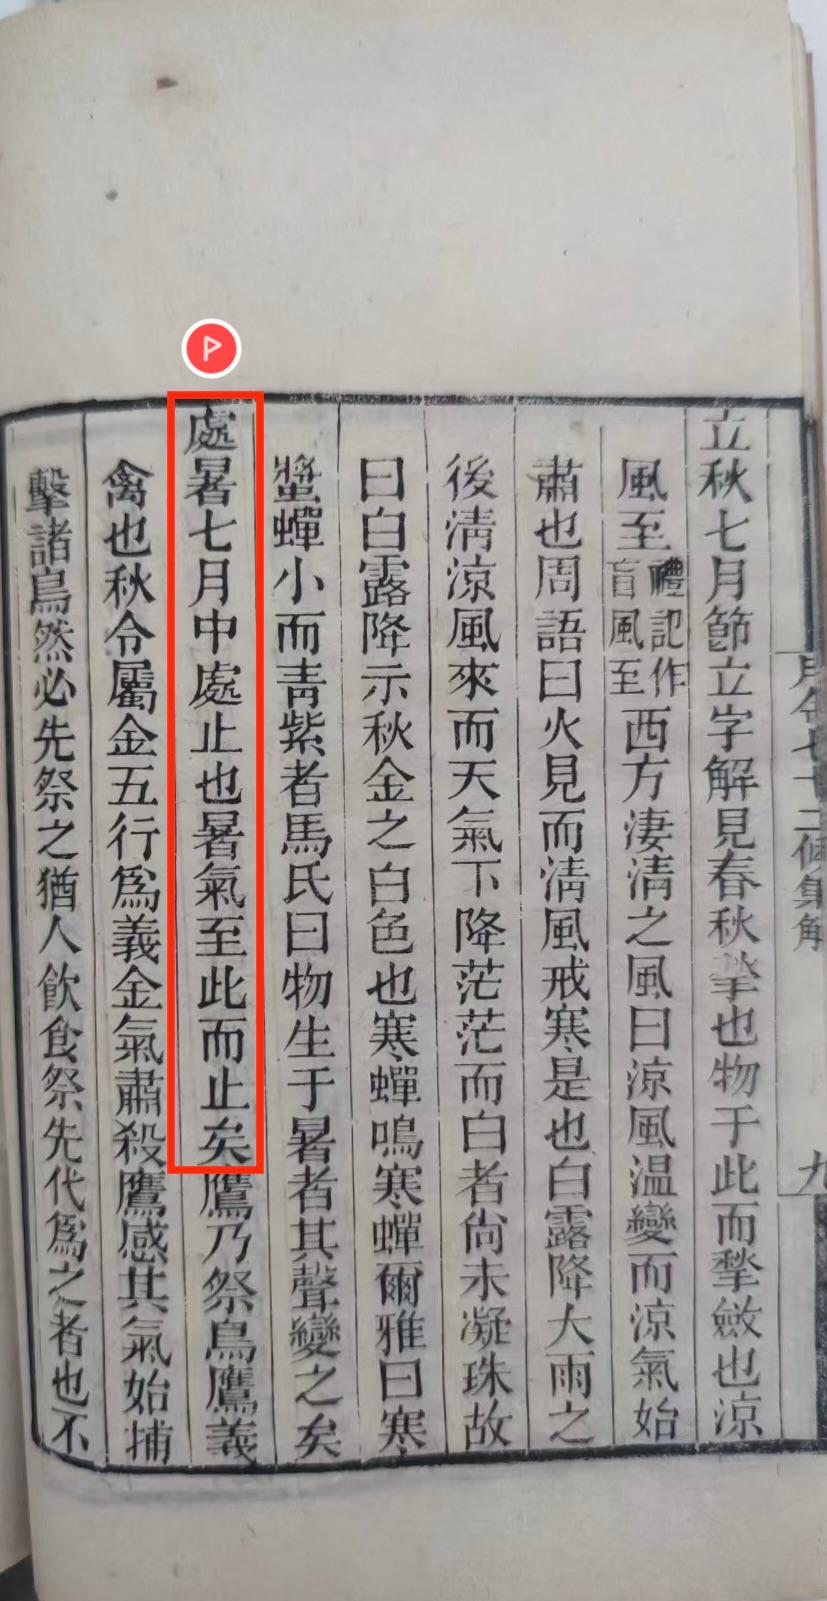 月令七十二候集解
九
立秋七月節立字解見春秋揫也物于此而揫斂也涼
風至禮記作盲風至西方淒清之風曰涼風温變而涼氣始
肅也周語曰火見而清風戒寒是也白露降大雨之
後清涼風來而天氣下降茫茫而白者尚未凝珠故
曰白露降示秋金之白色也寒蟬鳴寒蟬爾雅曰寒
螿蟬小而青紫者馬氏曰物生于暑者其聲變之矣
處暑七月中處止也暑氣至此而止矣鷹乃祭鳥鷹義
禽也秋令屬金五行爲義金氣肅殺鷹感其氣始捕
擊諸鳥然必先祭之猶人飲食祭先代爲之者也不